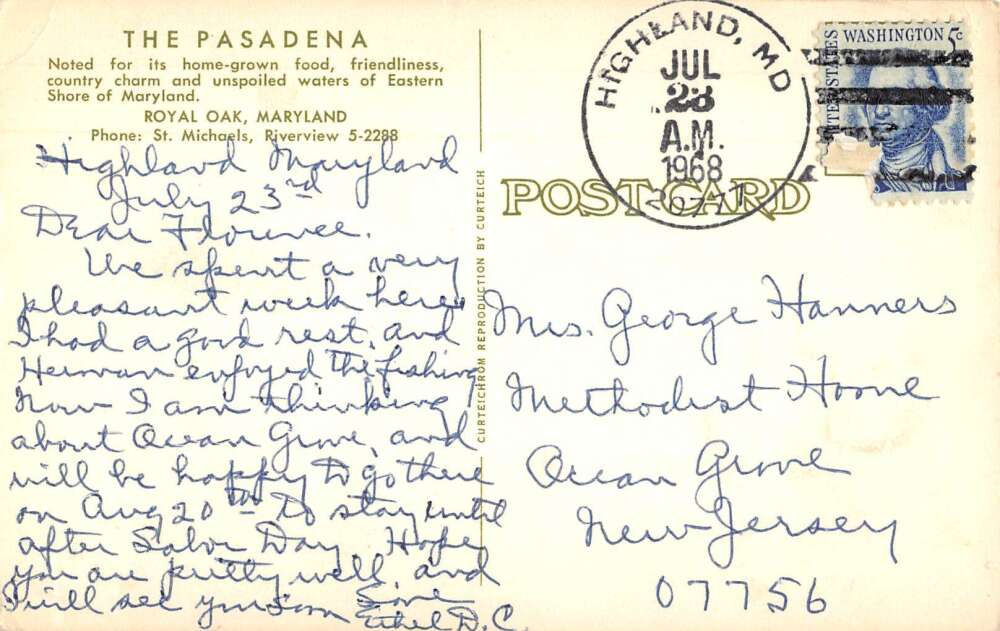 THE PASADENA
Noted for its home-grown food, friendliness,
country charm and unspoiled waters of Eastern
Shore of Maryland.
ROYAL OAK, MARYLAND
Phone: St. Michaels, Riverview 5-2288
Highland Maryland
July 23rd
Dear Florence.
We spent a very
pleasant week here.
I had a good rest, and
Herman enjoyed the fishing
Now I am thinking
about Ocean Grove, and
will be happy to go there
on Aug 20th to stay until
after Labor Day. Hope
you are pretty well, and
I will see you soon Love
Ethel D. C.
CURTEICHROM REPRODUCTION BY CURTEICH
HIGHLAND, MD
JUL
23
A.M.
1968
20777
UNITED STATES
WASHINGTON 5c
POST CARD
Mrs. George Hanners
Methodist Home
Ocean Grove
New Jersey
07756